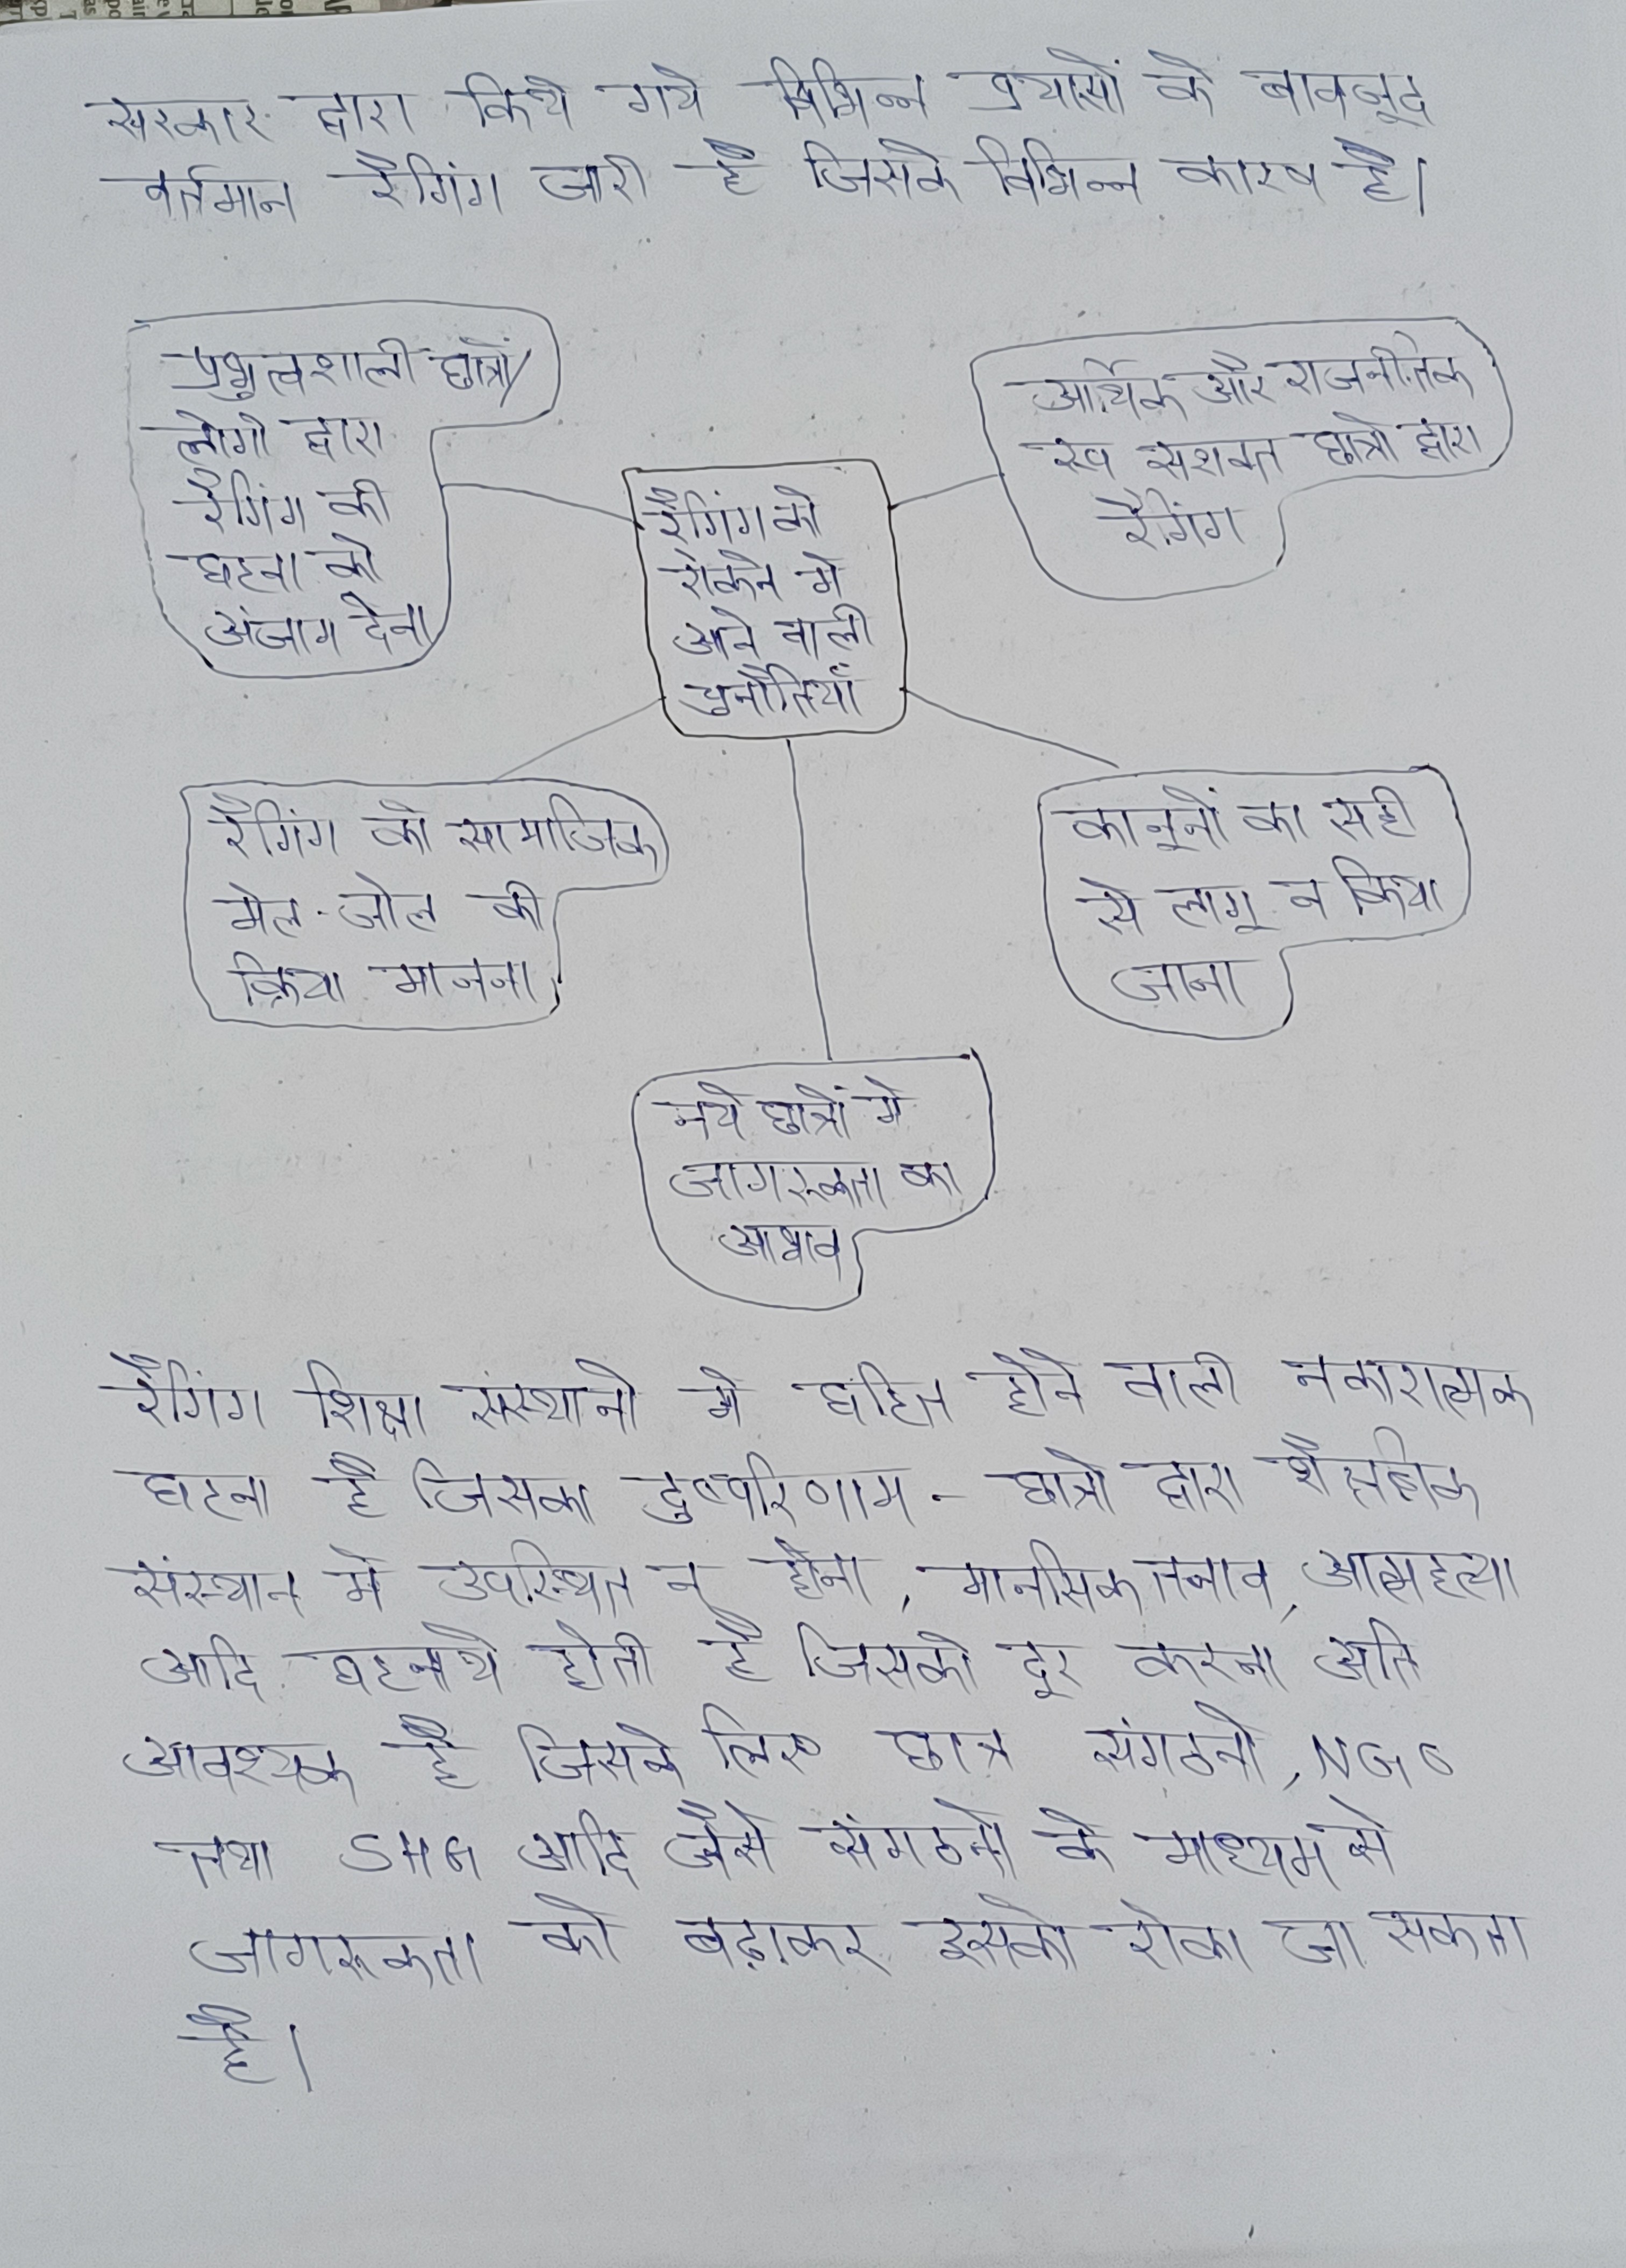 सरकार द्वारा किये गये विभिन्न प्रयासों के बावजूद
वर्तमान रैगिंग जारी है जिसके विभिन्न कारण है।
प्रभुत्वशाली छात्रों/
लोगो द्वारा
रैगिंग की
घटना को
अंजाम देना
आर्थिक और राजनीतिक
रूव सशक्त छात्रो द्वारा
रैगिंग
रैगिंग को
रोकने मे
आने वाली
चुनौतियाँ
रैगिंग को सामाजिक
मेल-जोल की
क्रिया मानना
कानूनों का सही
से लागू न किया
जाना
नये छात्रों मे
जागरूकता का
आभाव
रैगिंग शिक्षा संस्थानो मे घटित होने वाली नकारात्मक
घटना है जिसका दुष्परिणाम - छात्रो द्वारा शैक्षणिक
संस्थान मे उपस्थित न होना, मानसिक तनाव, आत्महत्या
आदि घटनाये होती है जिसको दूर करना अति
आवश्यक है जिसके लिए छात्र संगठनो, NGO
तथा SHG आदि जैसे संगठनो के माध्यम से
जागरूकता को बढ़ाकर इसको रोका जा सकता
है।